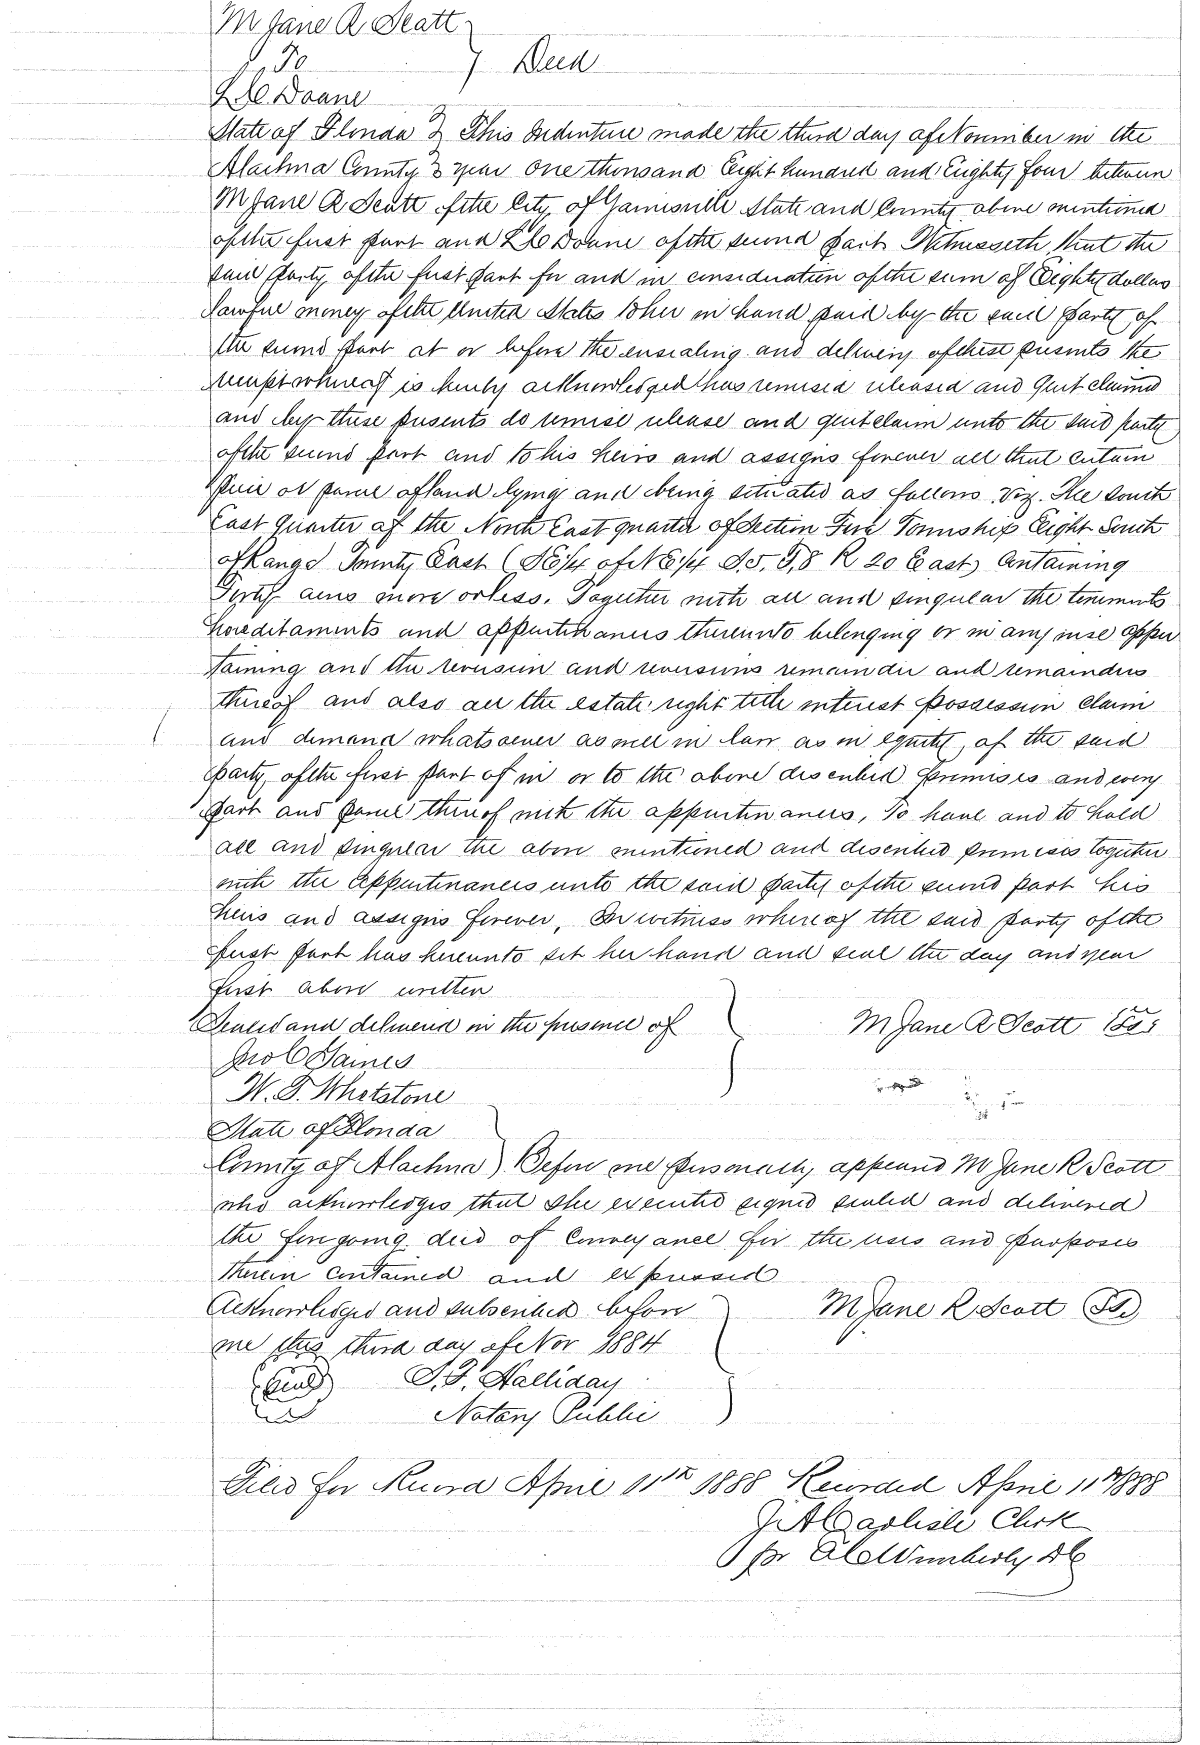 M Jane R Scott
To } Deed
L C Doane
State of Florida } This Indenture made the third day of November in the
Alachua County } year one thousand Eight hundred and Eighty four between
M Jane R Scott of the City of Gainesville State and County above mentioned
of the first part and L C Doane of the second part Witnesseth that the
said party of the first part for and in consideration of the sum of Eighty dollars
lawful money of the United States to her in hand paid by the said party of
the second part at or before the ensealing and delivery of these presents the
receipt whereof is hereby acknowledged has remised released and Quit claimed
and by these presents do remise release and quit claim unto the said party
of the second part and to his heirs and assigns forever all that certain
piece or parcel of land lying and being situated as follows viz. The South
East Quarter of the North East quarter of Section Five Township Eight South
of Range Twenty East (SE 1/4 of NE 1/4 S. 5. T. 8 R 20 East) Containing
Forty acres more or less. Together with all and singular the tenements
hereditaments and appurtenances thereunto belonging or in any wise apper
taining and the reversion and reversions remainder and remainders
thereof and also all the estate right title interest possession claim
and demand whatsoever as well in law as in equity, of the said
party of the first part of in or to the above described premises and every
part and parcel thereof with the appurtenances, To have and to hold
all and singular the above mentioned and described premises together
with the appurtenances unto the said party of the second part his
heirs and assigns forever, In witness whereof the said party of the
first part has hereunto set her hand and seal the day and year
first above written
Sealed and delivered in the presence of } M Jane R Scott
Jno C Gaines
W. F. Whetstone
State of Florida
County of Alachua ) Before me personally appeared M Jane R Scott
who acknowledges that she executed signed sealed and delivered
the foregoing deed of Conveyance for the uses and purposes
therein contained and expressed
Acknowledged and subscribed before } M Jane R Scott
me this third day of Nov 1884
(Seal) S. F. Halliday
Notary Public
Filed for Record April 11th 1888 Recorded April 11th 1888
J A Carlisle Clerk
pr Wimberly DC